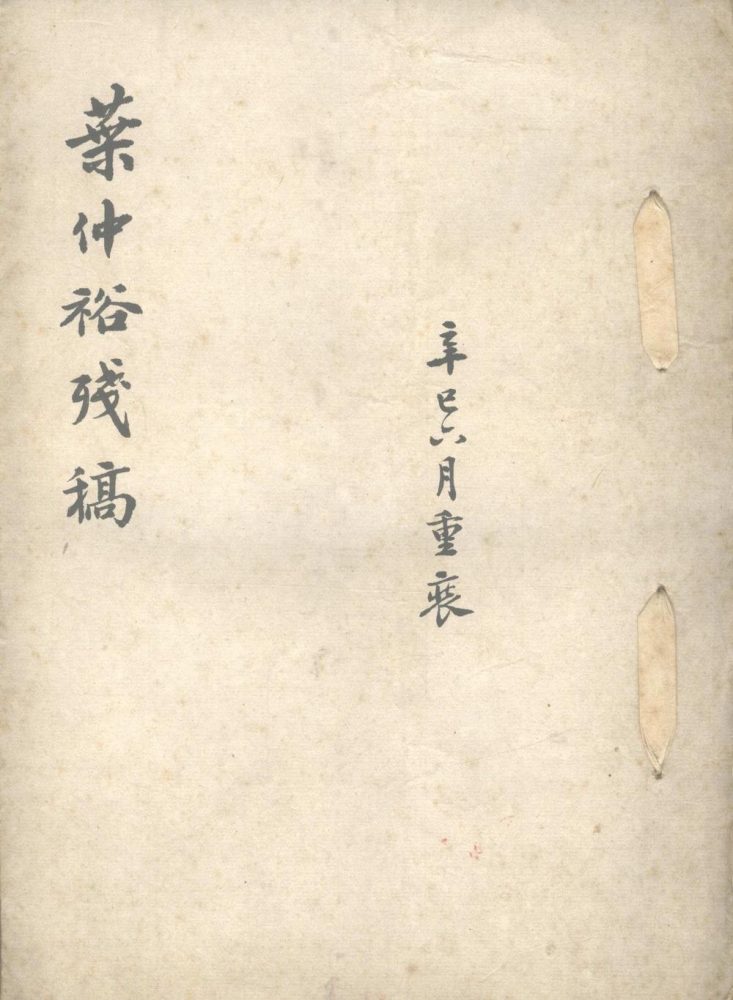 葉仲裕殘稿
辛巳六月重裝